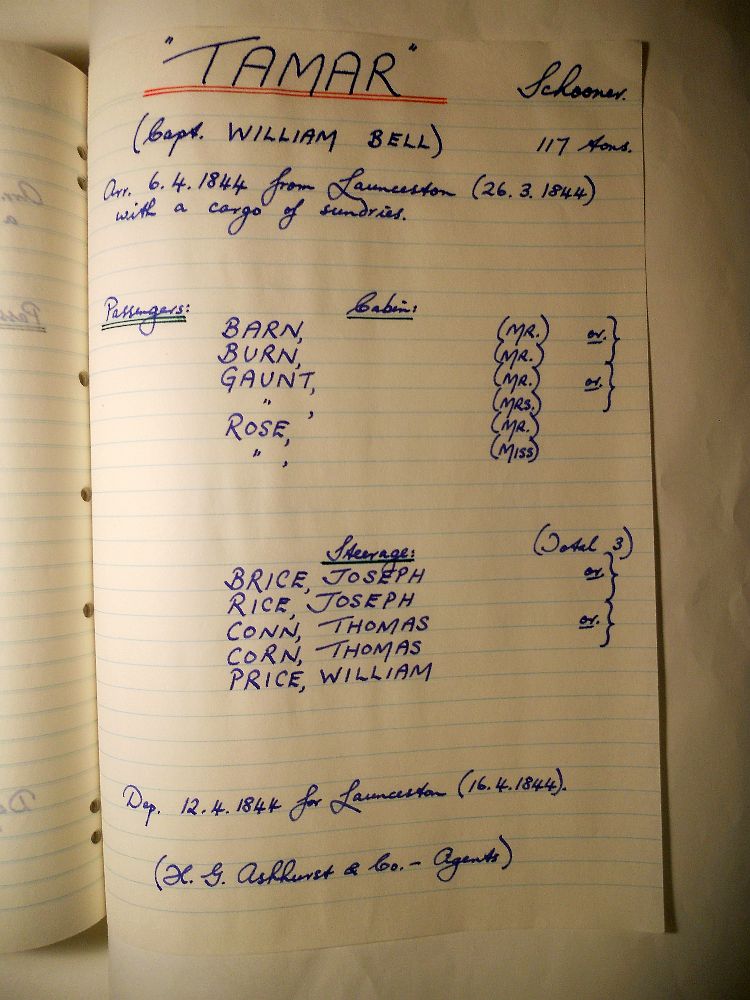 "TAMAR" Schooner.
(Capt. WILLIAM BELL) 117 tons.
Arr. 6.4.1844 from Launceston (26.3.1844)
with a cargo of sundries.
Passengers: Cabin:
BARN, (MR.) or }
BURN, (MR.)
GAUNT, (MR.) or }
" , (MRS.)
ROSE, (MR.)
" , (MISS)
Steerage: (Total 3)
BRICE, JOSEPH or }
RICE, JOSEPH
CONN, THOMAS or. }
CORN, THOMAS
PRICE, WILLIAM
Dep. 12.4.1844 for Launceston (16.4.1844).
(H. G. Ashhurst & Co. - Agents)